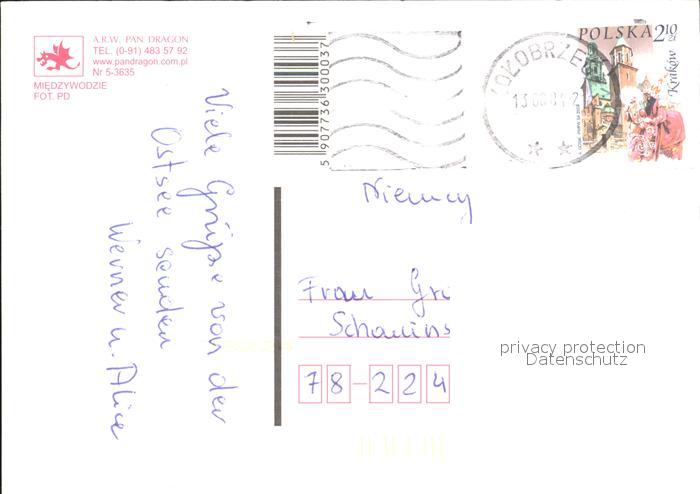 A.R.W. PAN DRAGON
TEL. (0-91) 483 57 92
www.pandragon.com.pl
Nr 5-3635
MIĘDZYWODZIE
FOT. PD
Viele Grüße von der
Ostsee senden
Werner u. Alice
5 907736 300037
KOŁOBRZEG
POLSKA 2,10 zł
Kraków
Niemcy
Frau
78-224
privacy protection
Datenschutz